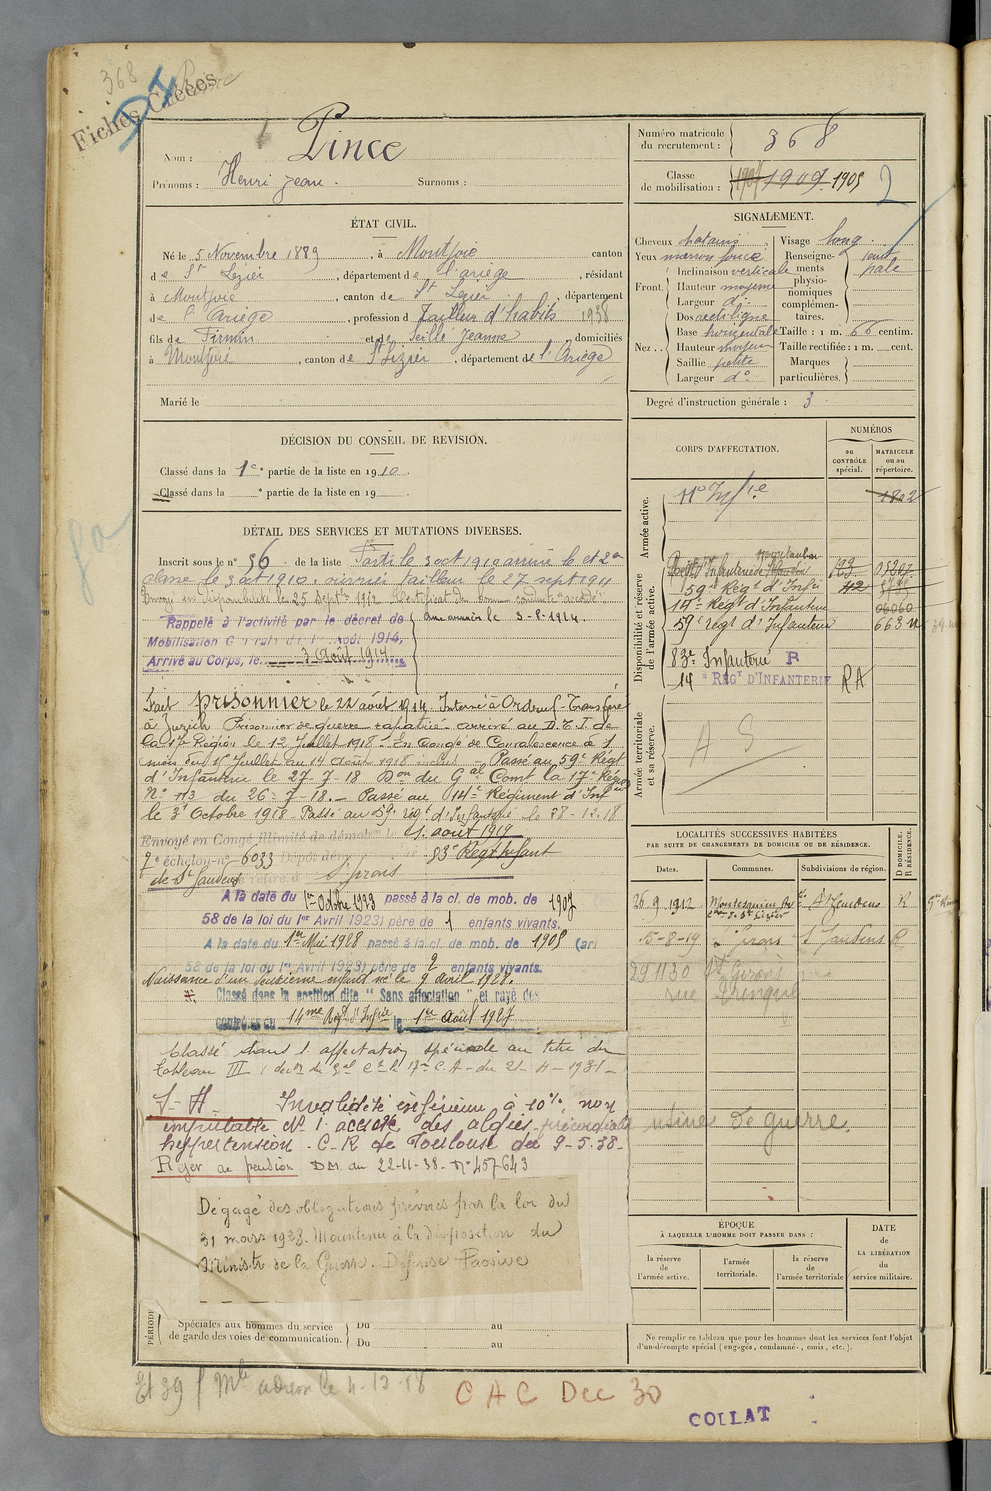 368
Fiches Créées
Nom : Pince
Prénoms : Henri Jean. Surnoms :
Numéro matricule du recrutement : 368
Classe de mobilisation : 1909 1905 2
ÉTAT CIVIL.
Né le 5 Novembre 1889, à Montjoie canton
de St Lizier, département de l'Ariège, résidant
à Montjoie, canton de St Lizier, département
de l'Ariège, profession de Tailleur d'habits 1938
fils de Firmin et de Seillé Jeanne domiciliés
à Montjoie, canton de St Lizier, département de l'Ariège
Marié le
SIGNALEMENT.
Cheveux chatains, Visage long.
Yeux marron foncé Renseignements physionomiques complémentaires. teint pâle
Front. Inclinaison verticale
Hauteur moyenne
Largeur do
Nez. Dos rectiligne
Base horizontale Taille : 1 m. 66 centim.
Hauteur moyen Taille rectifiée : 1 m. cent.
Saillie petite Marques particulières.
Largeur do
Degré d'instruction générale : 3
DÉCISION DU CONSEIL DE REVISION.
Classé dans la 1e partie de la liste en 1910.
Classé dans la e partie de la liste en 19
DÉTAIL DES SERVICES ET MUTATIONS DIVERSES.
Inscrit sous le n° 56 de la liste Parti le 3 oct 1910 arrivé le et 2e
classe le 3 oct 1910. ouvrier Tailleur le 27 sept 1911
Envoyé en disponibilité le 25 Sept 1912 Certificat de bonne conduite "accordé"
Rappelé à l'activité par le décret de
Mobilisation Générale du 1er août 1914,
Arrivé au Corps, le 3 Août 1914
Aux armées le 3-8-1914.
Fait prisonnier le 22 août 1914. Interné à Ordruf- Transféré
à Zurich. Prisonnier de guerre rapatrié. arrivé au D.E.I de
la 17e Région le 12 Juillet 1918. En Congé de Convalescence de 1
mois du 15 Juillet au 14 Août 1918 inclus. Passé au 59e Régt
d'Infanterie le 27-7-18 Don du Gal Comt la 17e Région
N° 113 du 26-7-18. - Passé au 14e Régiment d'Infrie
le 3 Octobre 1918. Passé au 59e régt d'Infanterie le 28-12-18
Envoyé en Congé illimité de démob le 21 août 1919
9e échelon n° 6033 Dépôt dém 83e Régt Infant
de St Gaudens se retire à St Girons
A la date du 1er Octobre 1923 passé à la cl. de mob. de 1907
58 de la loi du 1er Avril 1923) père de 1 enfants vivants.
A la date du 1er Mai 1928 passé à la cl. de mob. de 1905 (art
58 de la loi du 1er Avril 1923) père de 2 enfants vivants.
Naissance d'un deuxième enfant né le 9 avril 1928.
Classé dans la position dite "Sans affectation" et rayé des
contrôles du 14me Régt d'Infrie le 1er Août 1927
Classé dans l'affectation spéciale au titre du
tableau III
Invalidité inférieure à 10%, non
imputable N° 1. accuse des algies précordiales
hypertension. C. R de Toulouse du 9-5.38-
Rger de pension DM. du 22-11-38- N° 457643
usines de guerre.
Dégagé des obligations prévues par la loi du
31 mars 1928. Maintenu à la disposition du
Ministre de la Guerre. Défense Passive
PÉRIODE
Spéciales aux hommes du service
de garde des voies de communication.
Du au
Du au
CORPS D'AFFECTATION.
NUMÉROS
au CONTRÔLE spécial.
MATRICULE ou au répertoire.
Armée active.
11e Infie 1802
Disponibilité et réserve de l'armée active.
Montauban
59e Régt d'Infie
14e Régt d'Infanterie 06060
59e régt d'Infanterie 663
83e Infanterie R
14e RÉGT D'INFANTERIE RA
Armée territoriale et sa réserve.
A S
LOCALITÉS SUCCESSIVES HABITÉES
PAR SUITE DE CHANGEMENTS DE DOMICILE OU DE RÉSIDENCE.
Dates. Communes. Subdivisions de région. D DOMICILE. R RÉSIDENCE.
26.9.1912 St Gaudens R
15-8-19 St Girons St Gaudens R
29 11 30 St Girons
rue
ÉPOQUE
À LAQUELLE L'HOMME DOIT PASSER DANS :
la réserve de l'armée active.
l'armée territoriale.
la réserve de l'armée territoriale
DATE DE LA LIBÉRATION du service militaire.
Ne remplir ce tableau que pour les hommes dont les services font l'objet
d'un décompte spécial (engagés, condamnés, omis, etc.).
CAC Dec 30
COLLAT